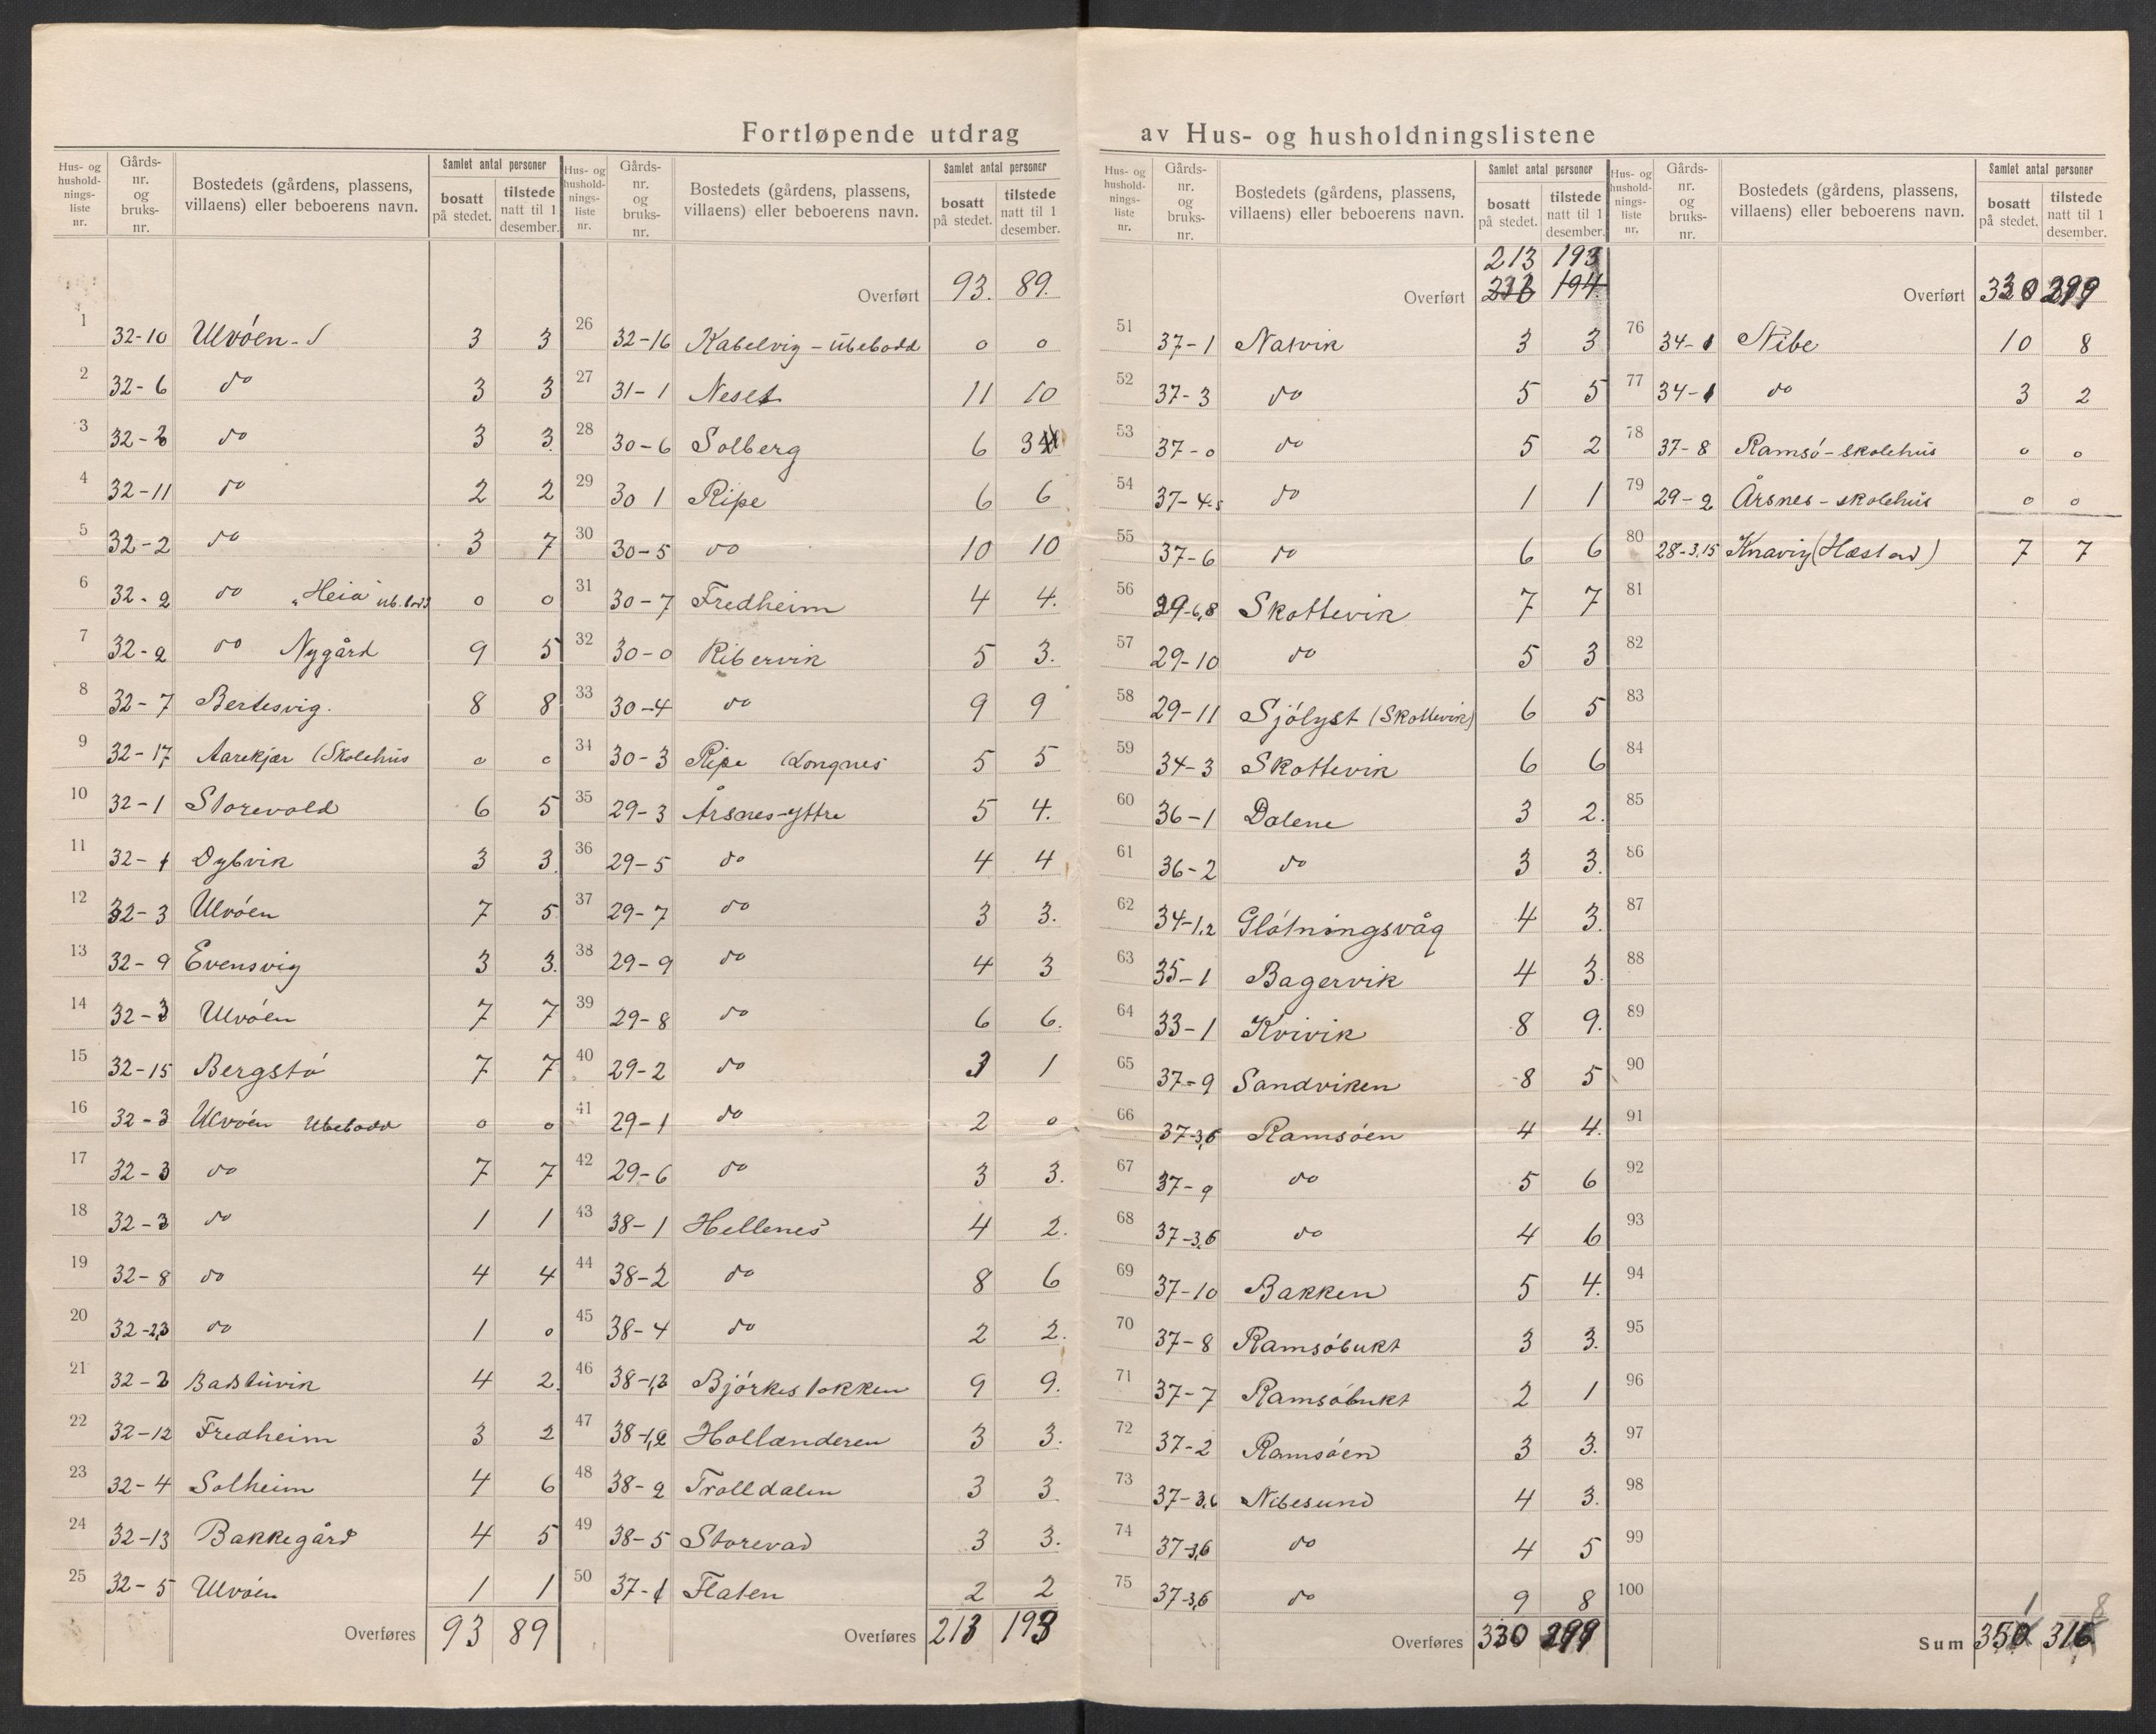 Fortløpende utdrag av Hus- og husholdningslistene
Hus- og husholdningsliste nr. | Gårdsnr. og bruksnr. | Bostedets (gårdens, plassens, villaens) eller beboerens navn. | Samlet antal personer | bosatt på stedet. | tilstede natt til 1 desember.
1 32-10 Ulvöen 3 3
2 32-6 do 3 3
3 32-2 do 3 3
4 32-11 do 2 2
5 32-2 do 3 7
6 32-2 do „Heia ub.bodd 0 0
7 32-2 do Nygård 9 5
8 32-7 Bertesvig. 8 8
9 32-17 Aarekjær (Skolehus 0 0
10 32-1 Storevold 6 5
11 32-1 Dybvik 3 3.
12 32-3 Ulvöen 7 5
13 32-9 Evensvig 3 3.
14 32-3 Ulvöen 7 7
15 32-15 Bergstö 7 7
16 32-3 Ulvöen Ubebodd 0 0
17 32-3 do 7 7
18 32-3 do 1 1
19 32-8 do 4 4
20 32-2,3 do 1 0
21 32-2 Badstuvik 4 2.
22 32-12 Fredheim 3 2
23 32-4 Solheim 4 6
24 32-13 Bakkegård 4 5
25 32-5 Ulvöen 1 1
Overføres 93 89
Hus- og husholdningsliste nr. | Gårdsnr. og bruksnr. | Bostedets (gårdens, plassens, villaens) eller beboerens navn. | Samlet antal personer | bosatt på stedet. | tilstede natt til 1 desember.
Overført 93. 89.
26 32-16 Kabelvig - ubebodd 0 0
27 31-1 Neset 11 10
28 30-6 Solberg 6 3
29 30 1 Ripe 6 6
30 30-5 do 10 10
31 30-7 Fredheim 4 4.
32 30-0 Ribervik 5 3.
33 30-4 do 9 9
34 30-3 Ripe (Longnes 5 5
35 29-3 Årsnes-yttre 5 4.
36 29-5 do 4 4
37 29-7 do 3 3.
38 29-9 do 4 3
39 29-8 do 6 6.
40 29-2 do 3 1
41 29-1 do 2 0
42 29-6 do 3 3.
43 38-1 Hellenes 4 2.
44 38-2 do 8 6
45 38-4 do 2 2.
46 38-1,3 Björkestokken 9 9.
47 38-1,2 Hollænderen 3 3.
48 38-2 Trolldalen 3 3
49 38-5 Storevad 3 3.
50 37-1 Flaten 2 2
Overføres 213 193
Hus- og husholdningsliste nr. | Gårdsnr. og bruksnr. | Bostedets (gårdens, plassens, villaens) eller beboerens navn. | Samlet antal personer | bosatt på stedet. | tilstede natt til 1 desember.
213 193
Overført 194
51 37-1 Nasvik 3 3
52 37-3 do 5 5
53 37-0 do 5 2
54 37-4-5 do 1 1
55 37-6 do 6 6
56 29-6,8 Skottevik 7 7
57 29-10 do 5 3
58 29-11 Sjölyst (Skottevik) 6 5
59 34-3 Skottevik 6 6
60 36-1 Dalene 3 2.
61 36-2 do 3 3.
62 34-1,2 Glötningsvåg 4 3.
63 35-1 Bagervik 4 3.
64 33-1 Kvivik 8 9.
65 37-9 Sandviken 8 5
66 37-3,6 Ramsöen 4 4.
67 37-9 do 5 6
68 37-3,6 do 4 6
69 37-10 Bakken 5 4.
70 37-8 Ramsöbukt 3 3.
71 37-7 Ramsöbukt 2 1
72 37-2 Ramsöen 3 3.
73 37-3,6 Nibesund 4 3.
74 37-3,6 do 4 5
75 37-3,6 do 9 8
Overføres 330 299
Hus- og husholdningsliste nr. | Gårdsnr. og bruksnr. | Bostedets (gårdens, plassens, villaens) eller beboerens navn. | Samlet antal personer | bosatt på stedet. | tilstede natt til 1 desember.
Overført 330 299
76 34-1 Nibe 10 8
77 34-1 do 3 2
78 37-8 Ramsö - skolehus 0 0
79 29-2 Årsnes - skolehus 0 0
80 28-3,15 Knavig (Hæstad) 7 7
81
82
83
84
85
86
87
88
89
90
91
92
93
94
95
96
97
98
99
100
1 8
Sum 350 316